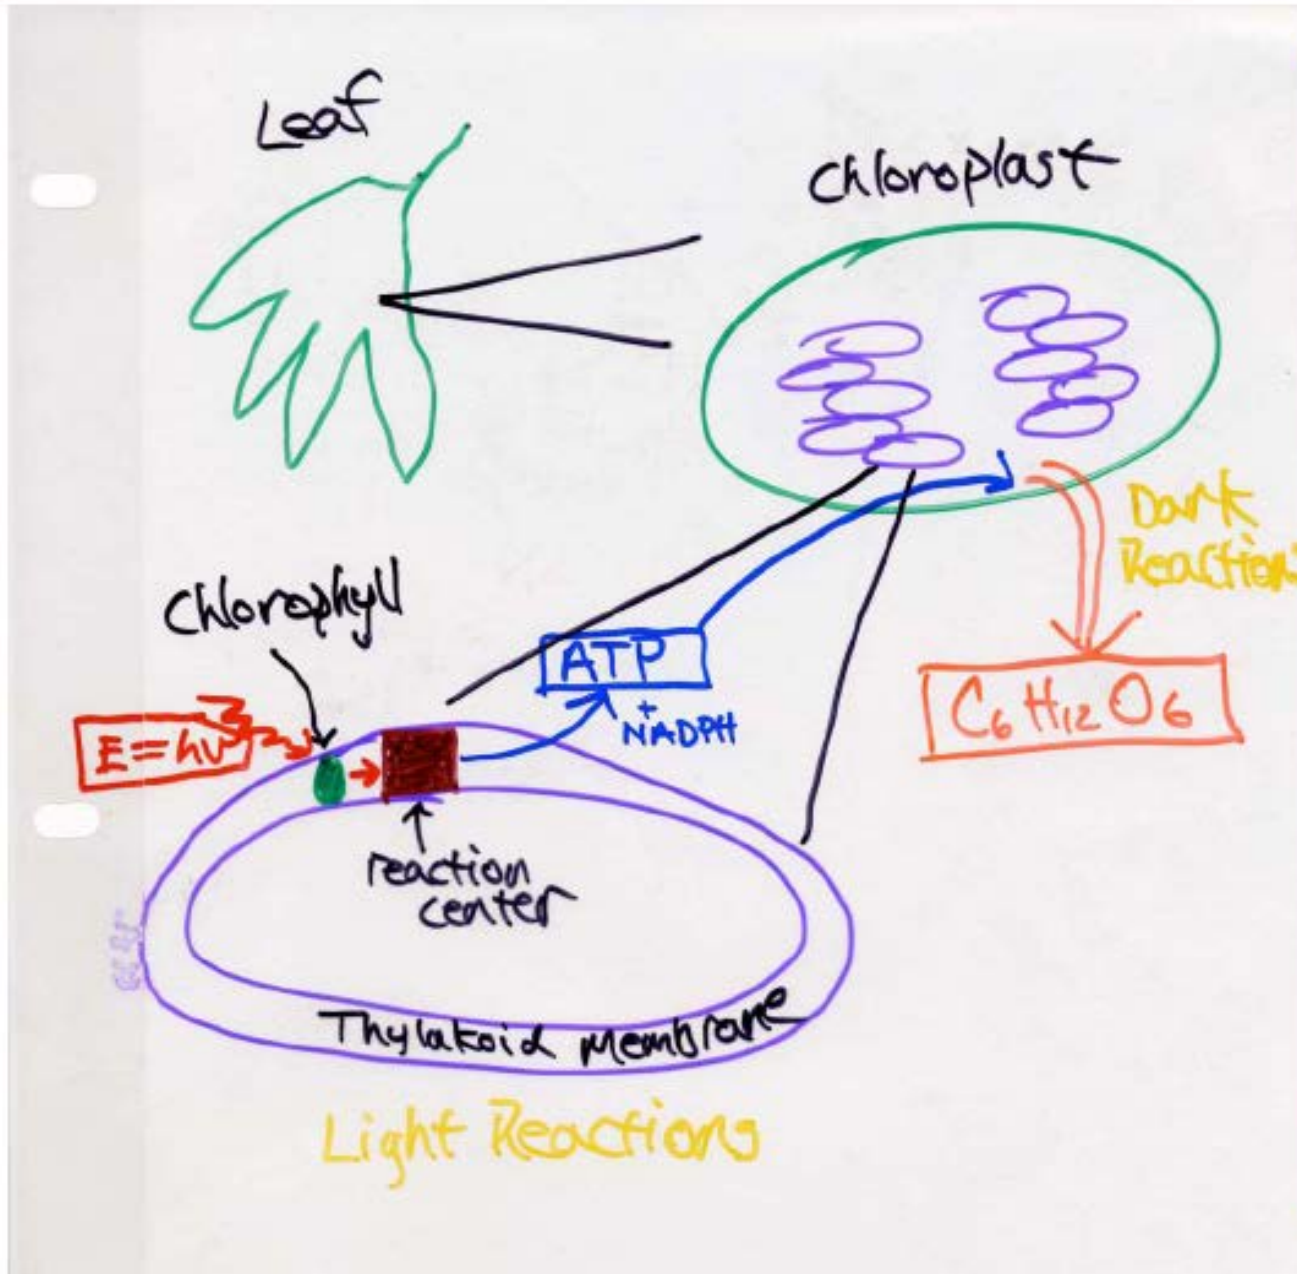 Leaf
Chloroplast
Dark
Reactions
Chlorophyll
ATP
+
NADPH
C6H12O6
E=hν
reaction
center
Thylakoid Membrane
Light Reactions